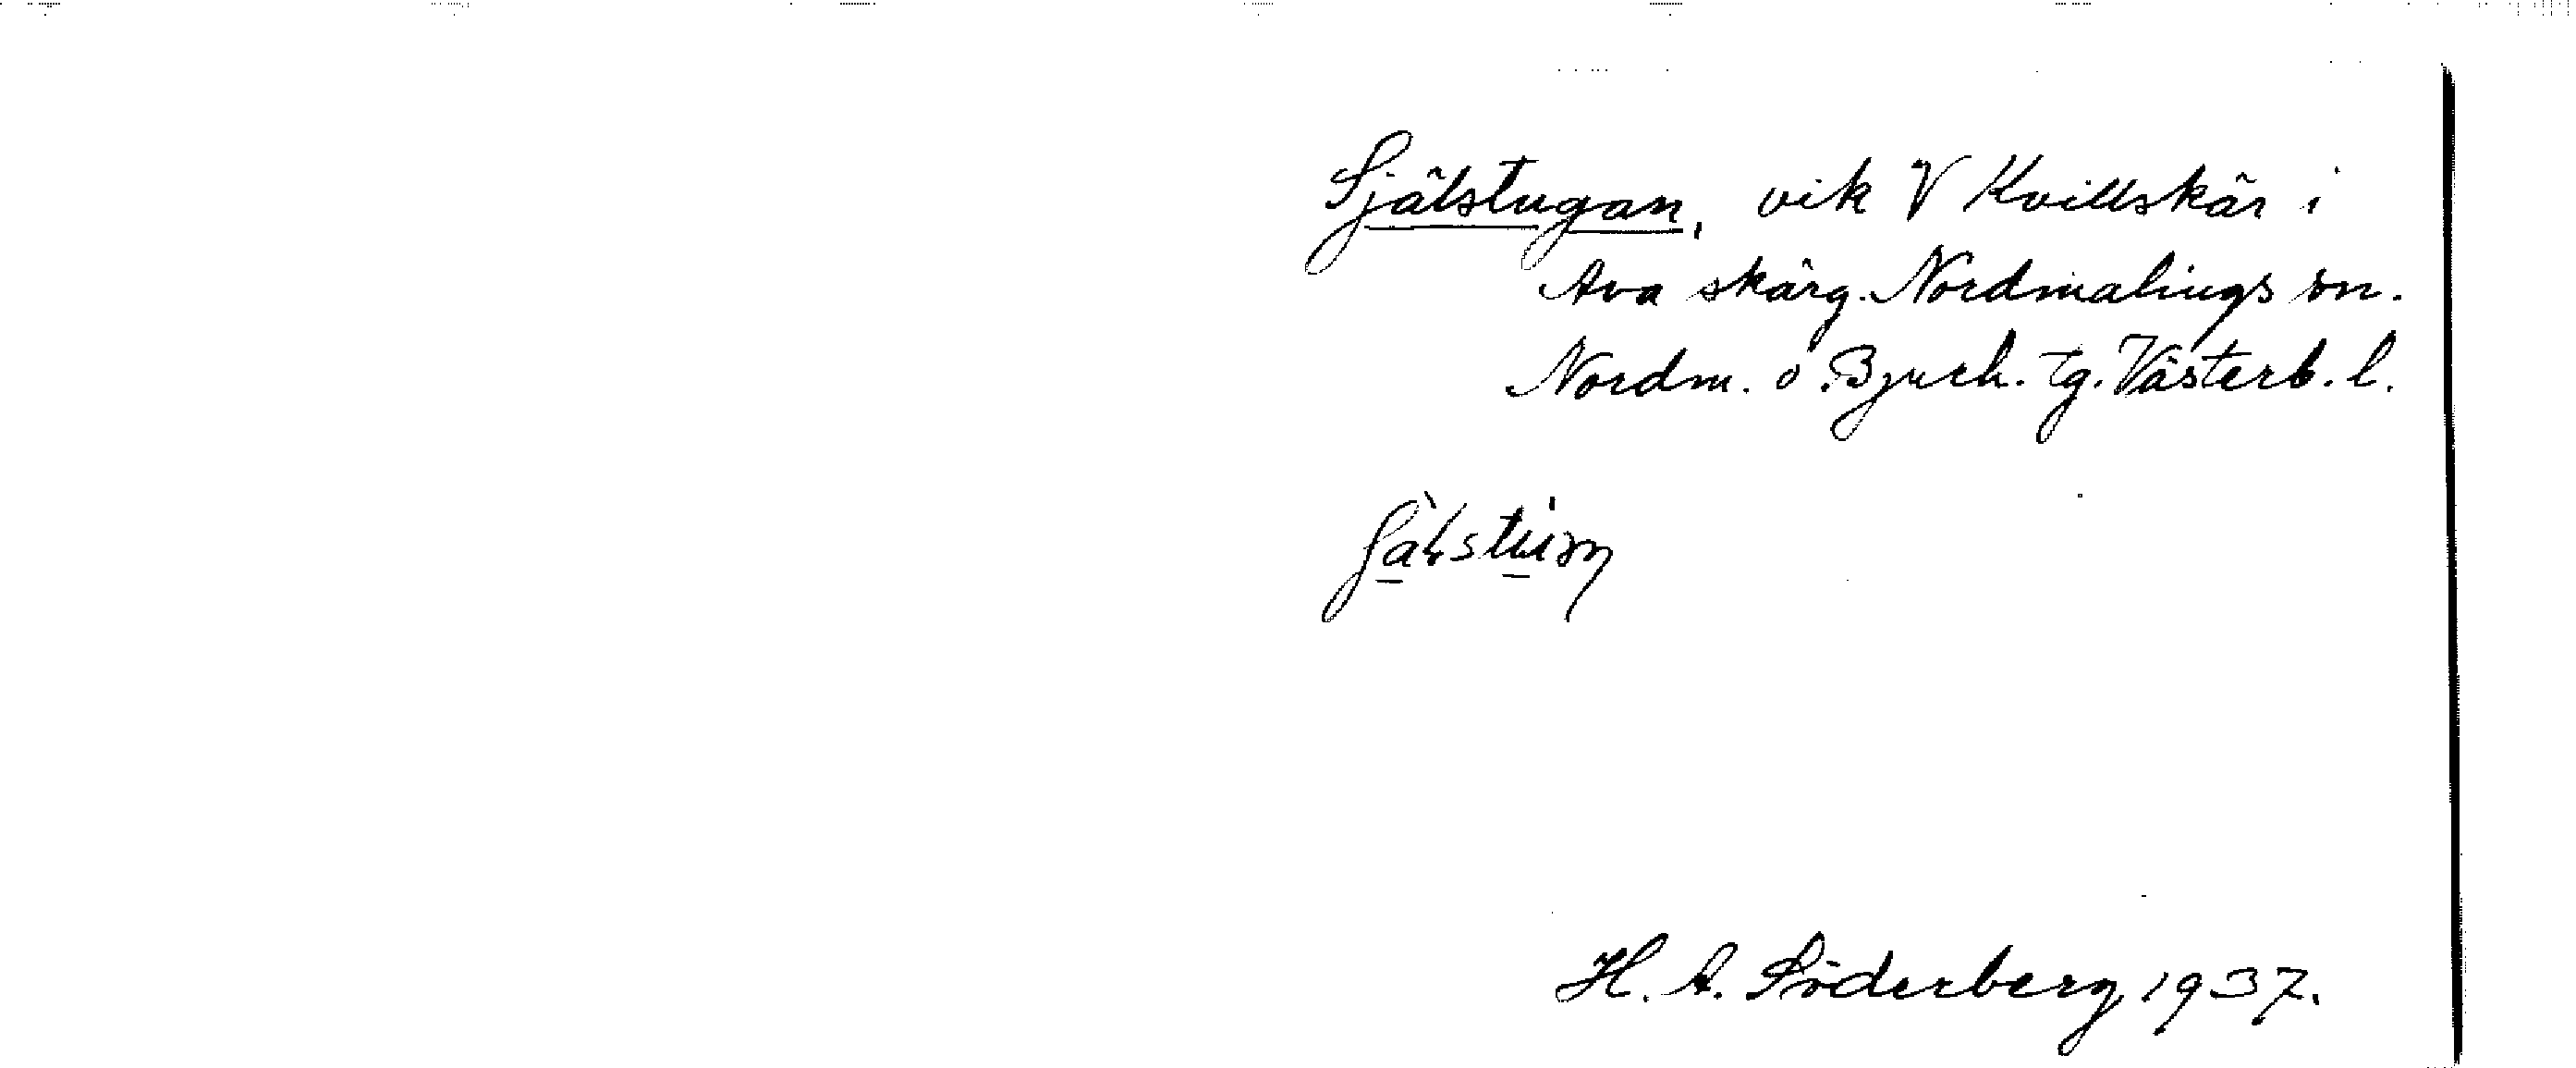 Själstugan, vik V Kvillskär i
Ava skärg. Nordmalings sn.
Nordm. o. Bjurh. tg. Västerb. l.
H. A. Söderberg 1937.